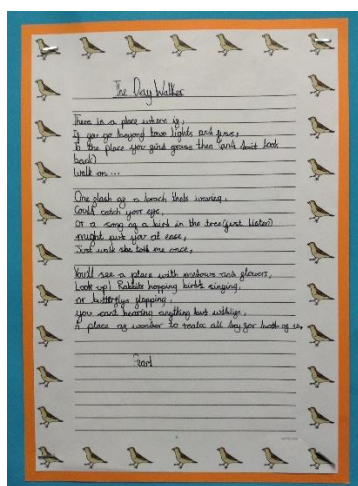 The Day Walker
There in a place where is,
If you go beyond town lights and
To the place you find grass then don't look
back)
Walk on ...
One flash of a
Could catch your eye,
Or a song of a bird in the tree (just listen)
might put you at ease,
Just walk she told me once,
You'll see a place with medows and flowers,
Look up! Rabbits hopping birds singing,
or butterflys flapping,
you cant hearing anything but
A place of wonder to relax all day for both of us,